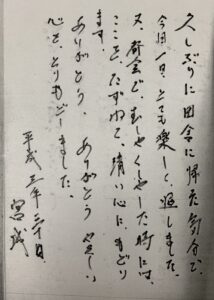 久しぶりに田舎に帰た気分で
今日一日、とても楽しく、過しました。
又、都会で、むしゃくしゃした時には、
ここを、たずねて、清い心に、もどり
ます。
ありがとう、ありがとう
心を、とりもどしました。
平成三年 日
宮城